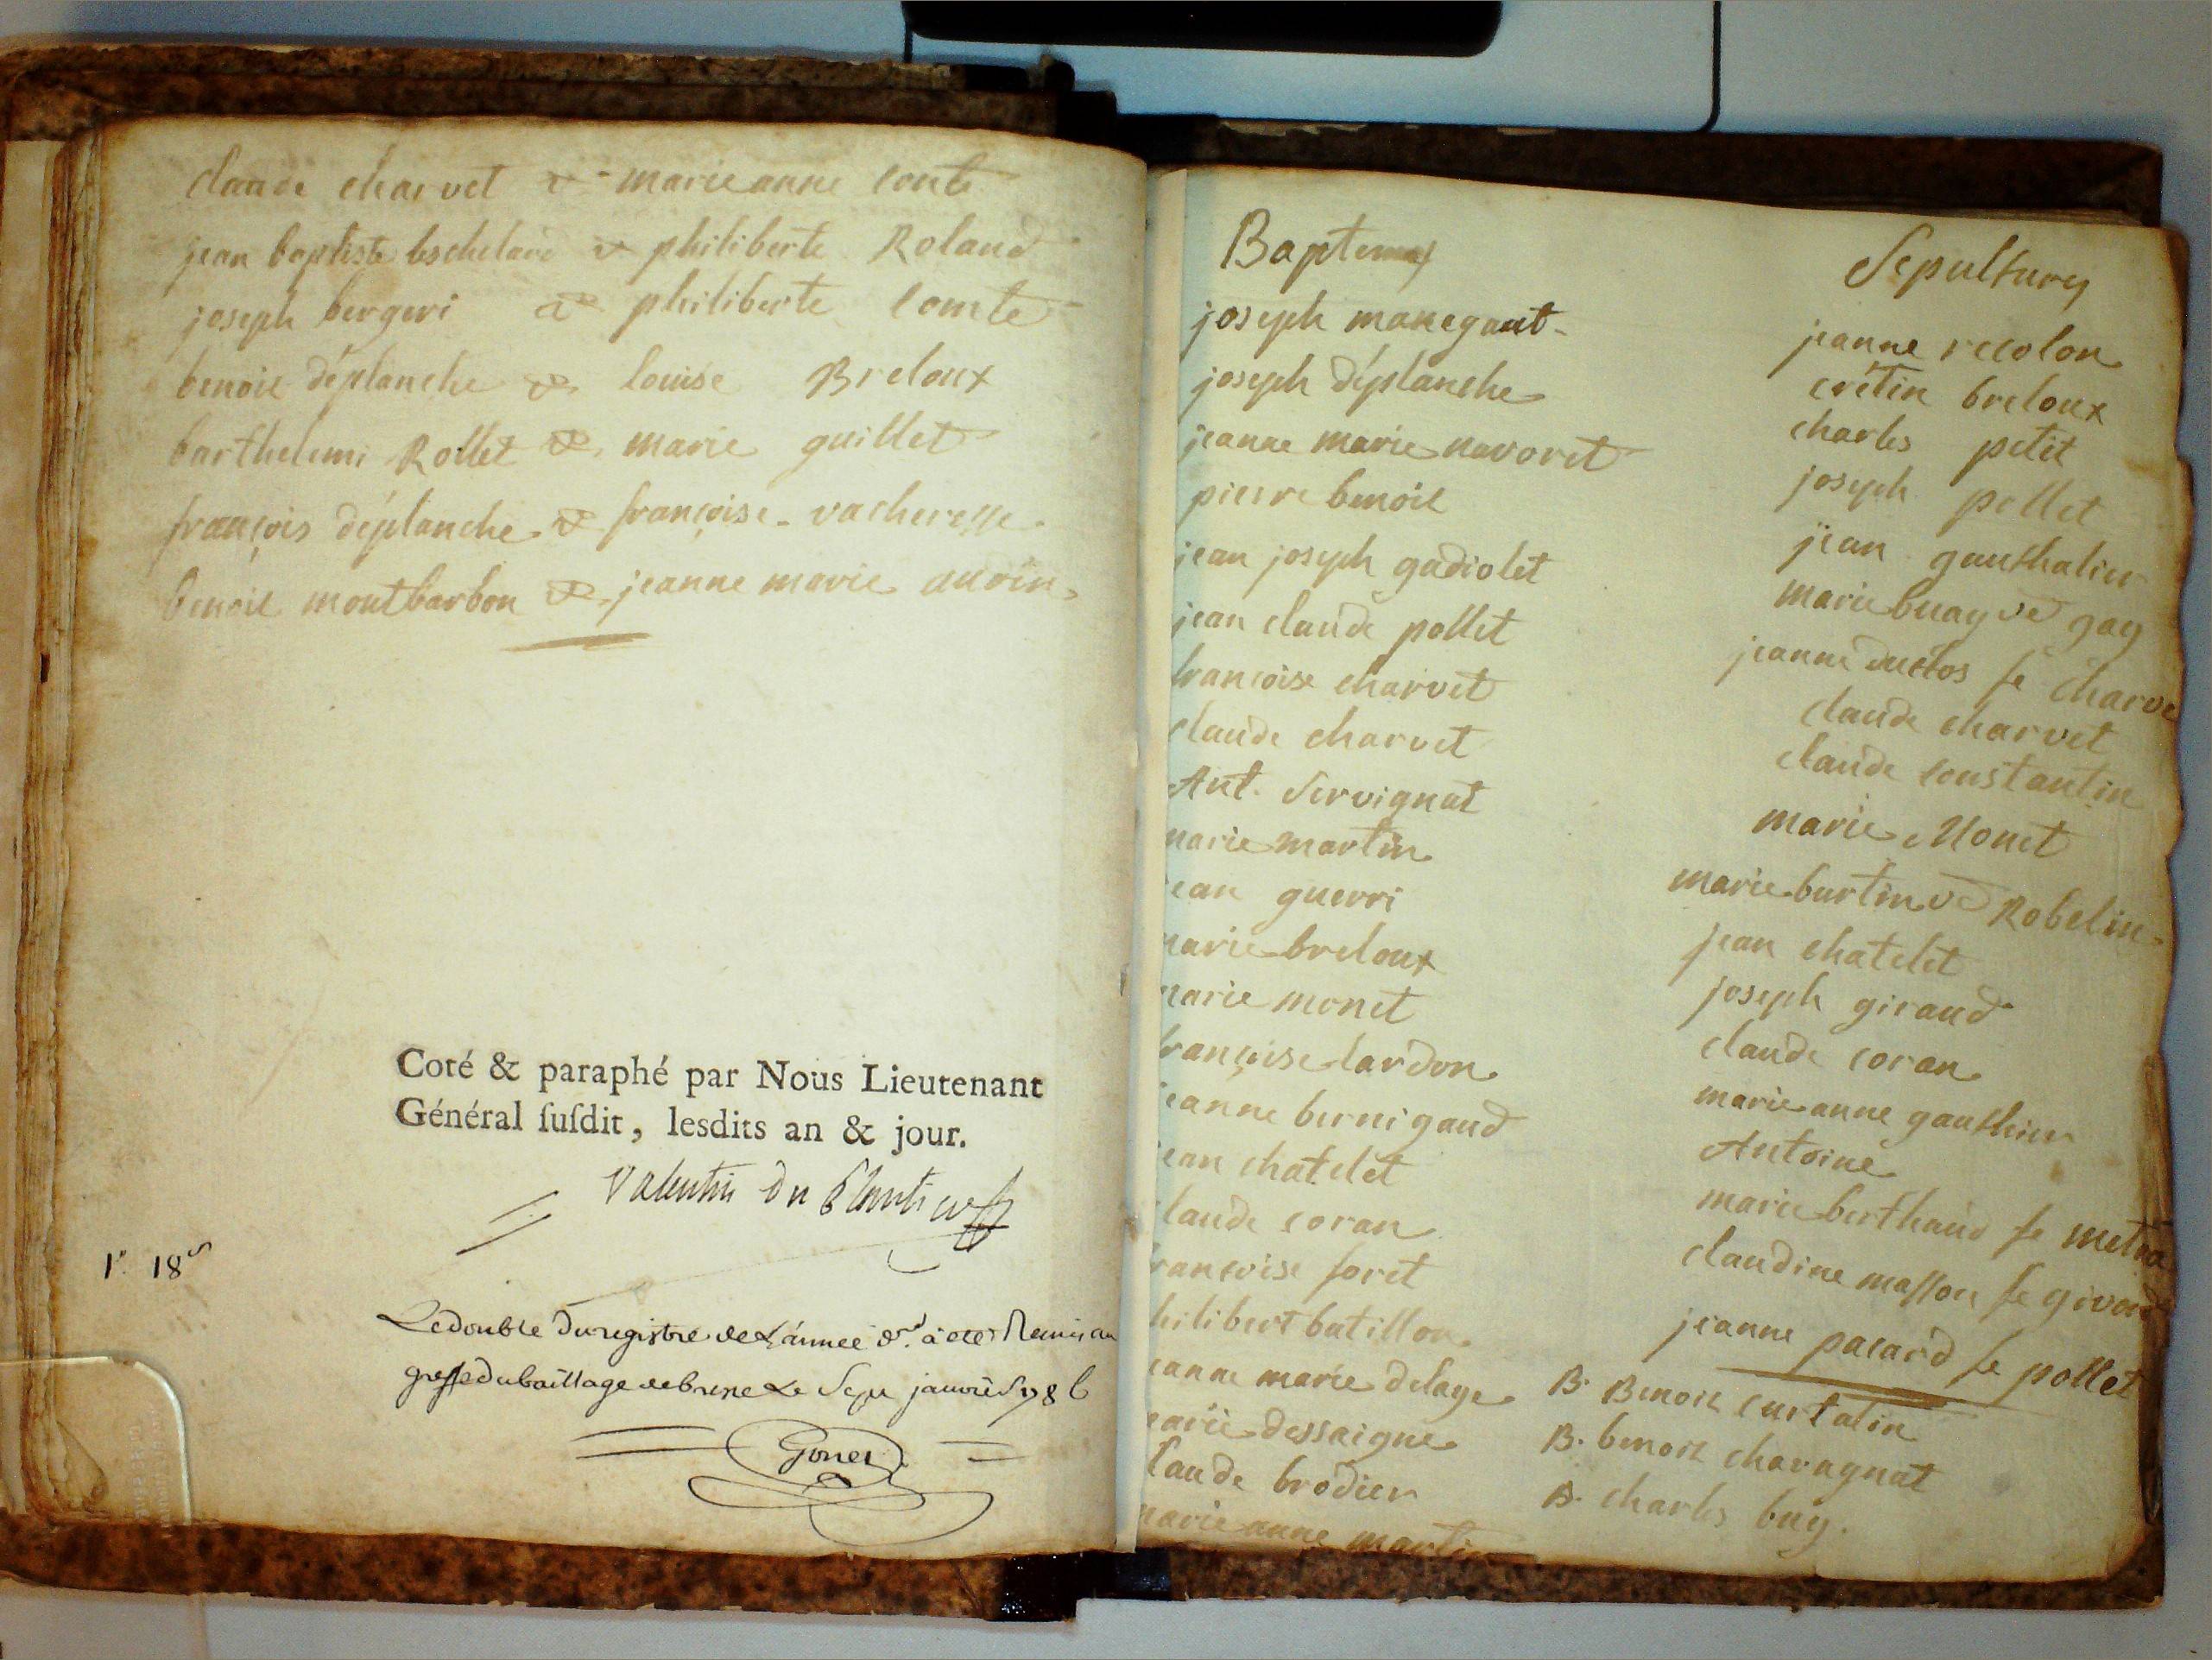 claude charvet et marie anne conte
jean baptiste leschelard et philiberte Roland
joseph bergeri et philiberte comte
benoit déplanche et louise Breloux
barthelemi Rollet et marie guillet
françois déplanche et françoise vacheresse
benoit montbarbon et jeanne marie
Coté & paraphé par Nous Lieutenant
Général ſuſdit, lesdits an & jour.
Valentin Du Plantier
1r. 18
Le double du registre de L'année dre à eté Remis au
greffe du bailliage de bresse Le Sept janvier 1786
Gonet
Baptemes
joseph manegaut
joseph déplanche
jeanne marie navoret
pierre benoit
jean joseph gadiolet
jean claude pollet
francoise charvet
claude charvet
Ant. Servignat
marie martin
jean guerri
marie breloux
marie monet
françoise lardon
jeanne bernigaud
jean chatelet
claude coran
francoise foret
philibert batillon
jeanne marie delaye
marie dessaigne
claude brodier
marie anne martin
Sepultures
jeanne recolon
crétin breloux
charles petit
joseph pollet
jean gauthalier
marie buay ve gay
jeanne duclos fe charve
claude charvet
claude constantin
marie Monet
marie burtin ve Robelin
jean chatelet
joseph giraud
claude coran
marie anne gauthier
Antoine
marie berthaud fe
claudine masson fe
jeanne pacard fe pollet
B. Benoit curtalin
B. benoit charagnat
B. charles buy.